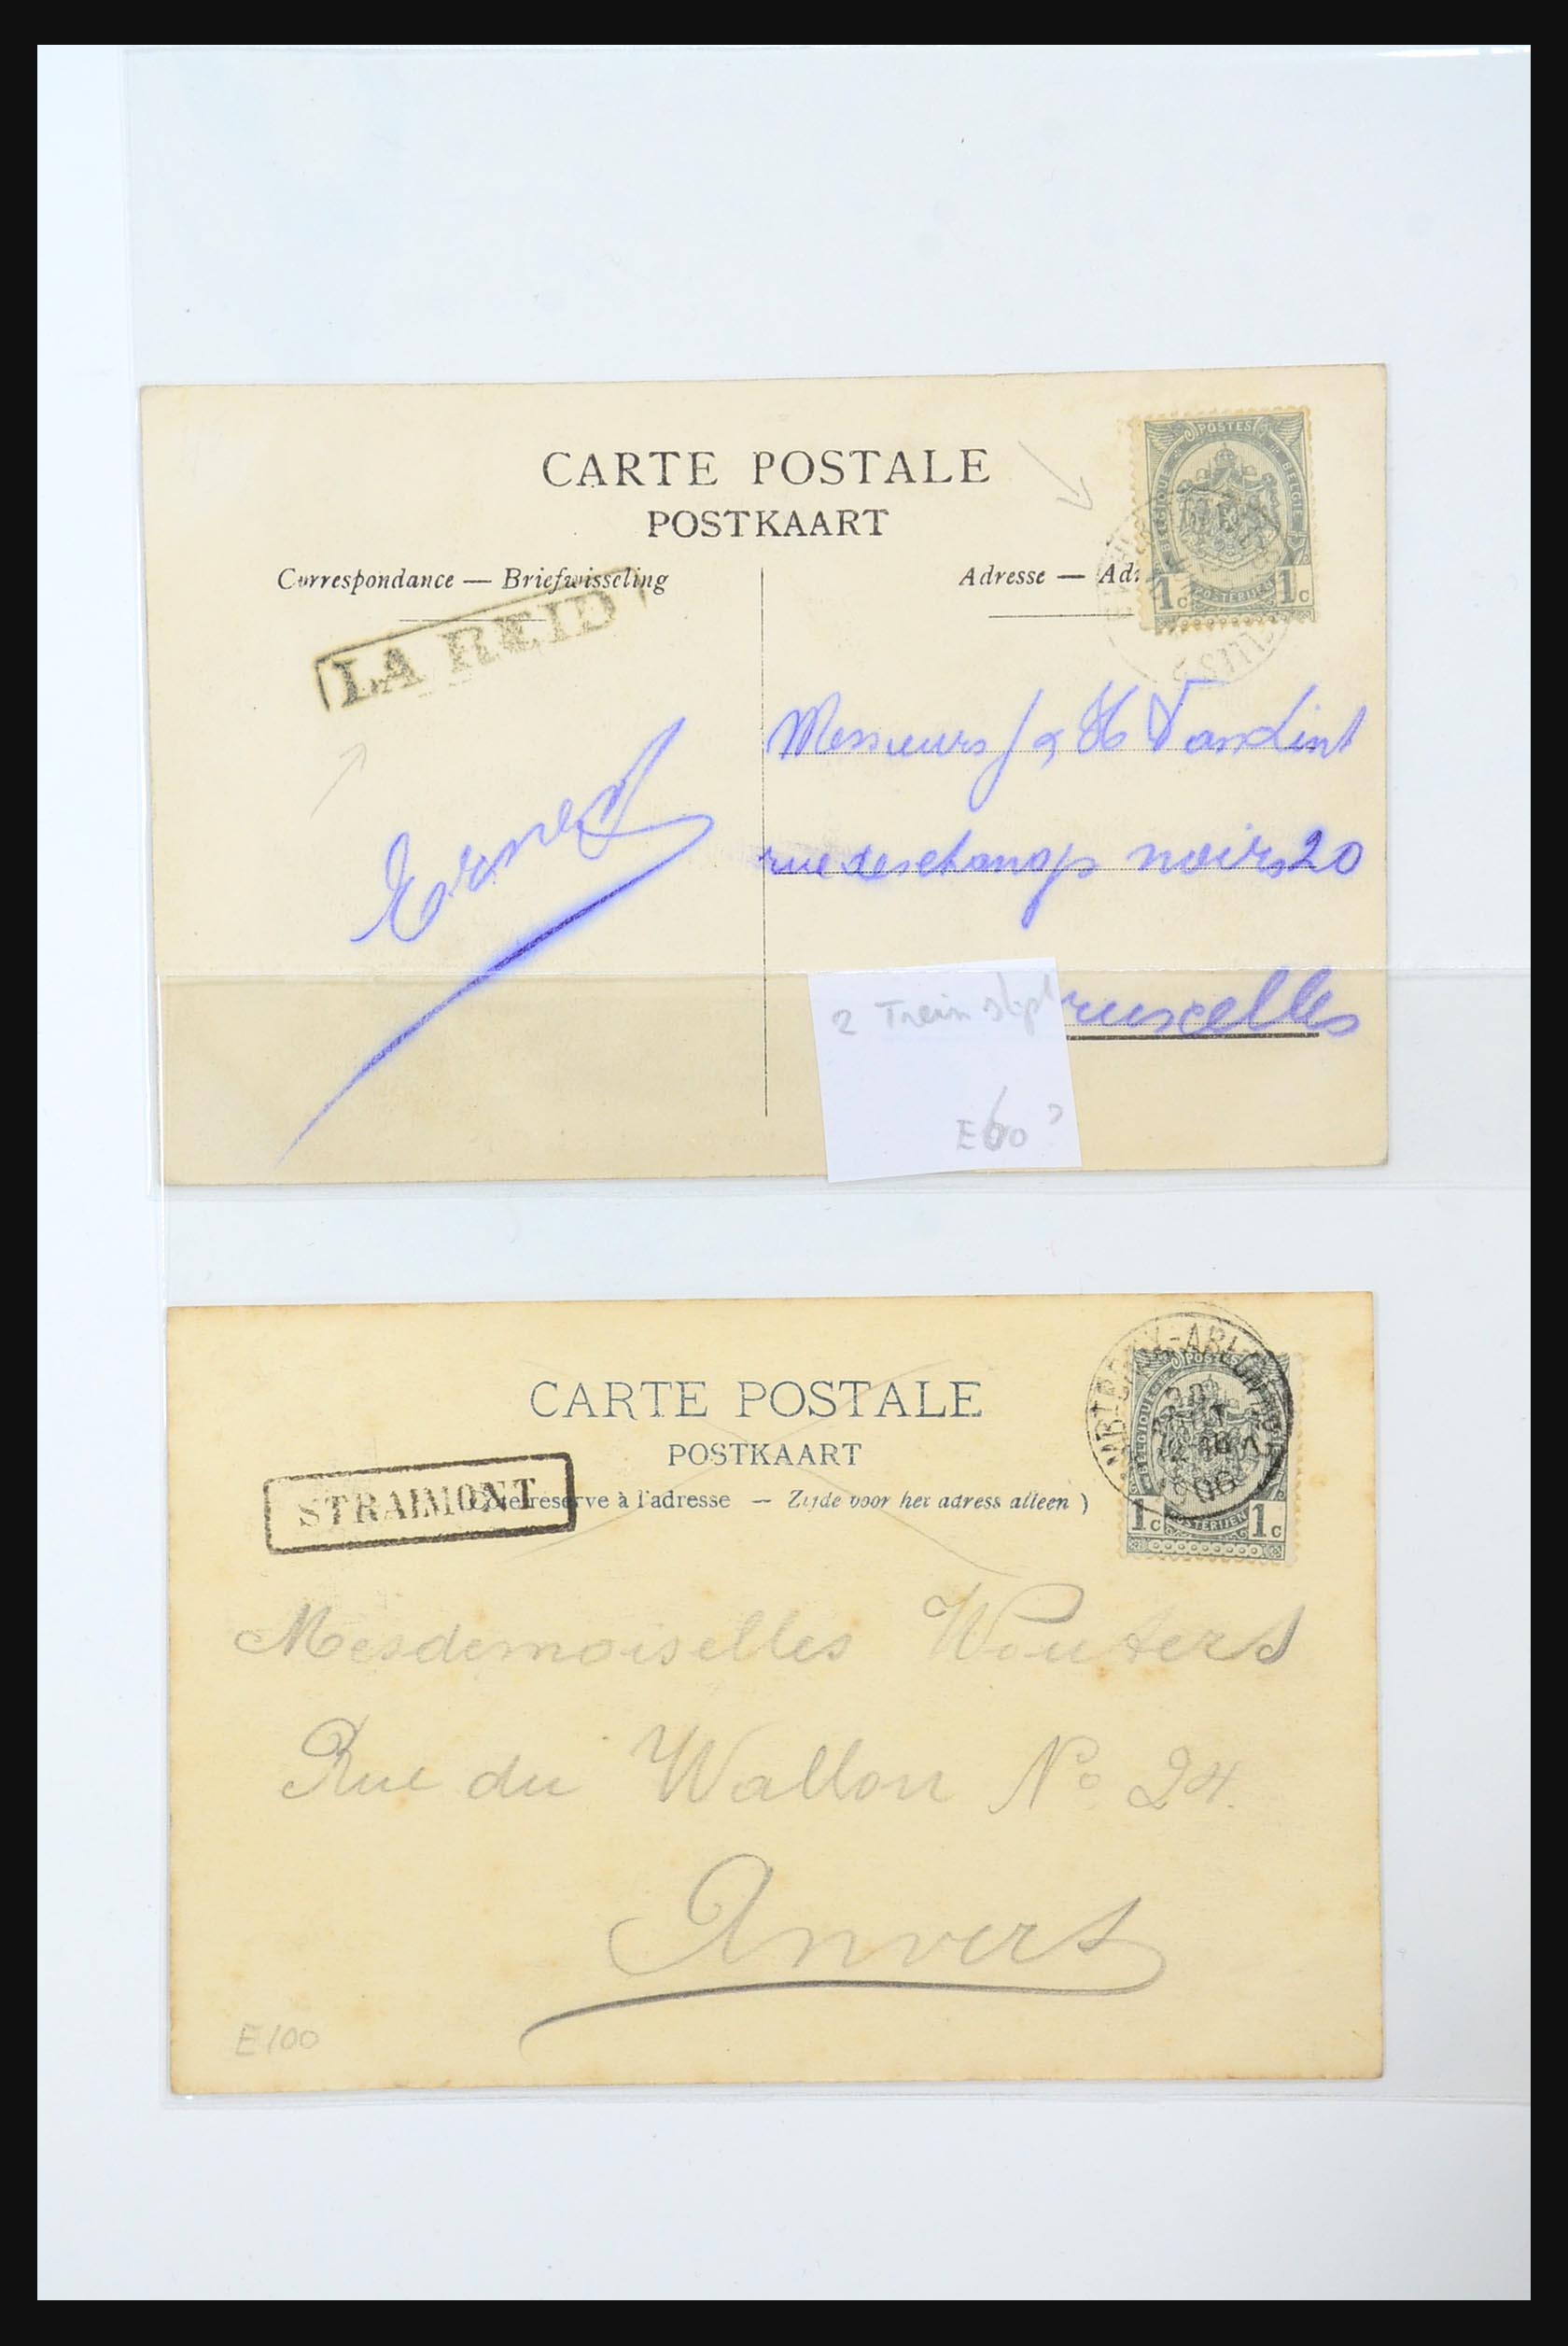 CARTE POSTALE
POSTKAART
Correspondance — Briefwisseling
Adresse —
POSTES
BELGIQUE
BELGIE
1c POSTERIJEN 1c
LA REID
Messieurs J & H
Ernest
rue des champs noirs 20
2 Trein
E60?
CARTE POSTALE
POSTKAART
STRAIMONT
reserve à l'adresse — Zijde voor het adress alleen )
POSTES
BELGIQUE
1c POSTERIJEN 1c
Mesdemoiselles Wouters
Rue du Wallon No 24.
Anvers
E100